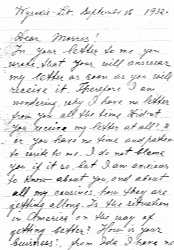 Wysokie-Lit. September 16 1932.
Dear Morris!
In your letter to me you
wrote, that your will answear
my letter as soon as you will
receive it. Therefore I am
wondering, why I have no letter
from you all the time. Did not
you receive my letter at all? or
or you have no time and patien
to write to me. I do not blame
you if it so, but I am anxious
to know about you, and about
all my cousines, how they are
getting allong. Is the situation
in America on the way of
getting better? How is your
business? from Ida I have no